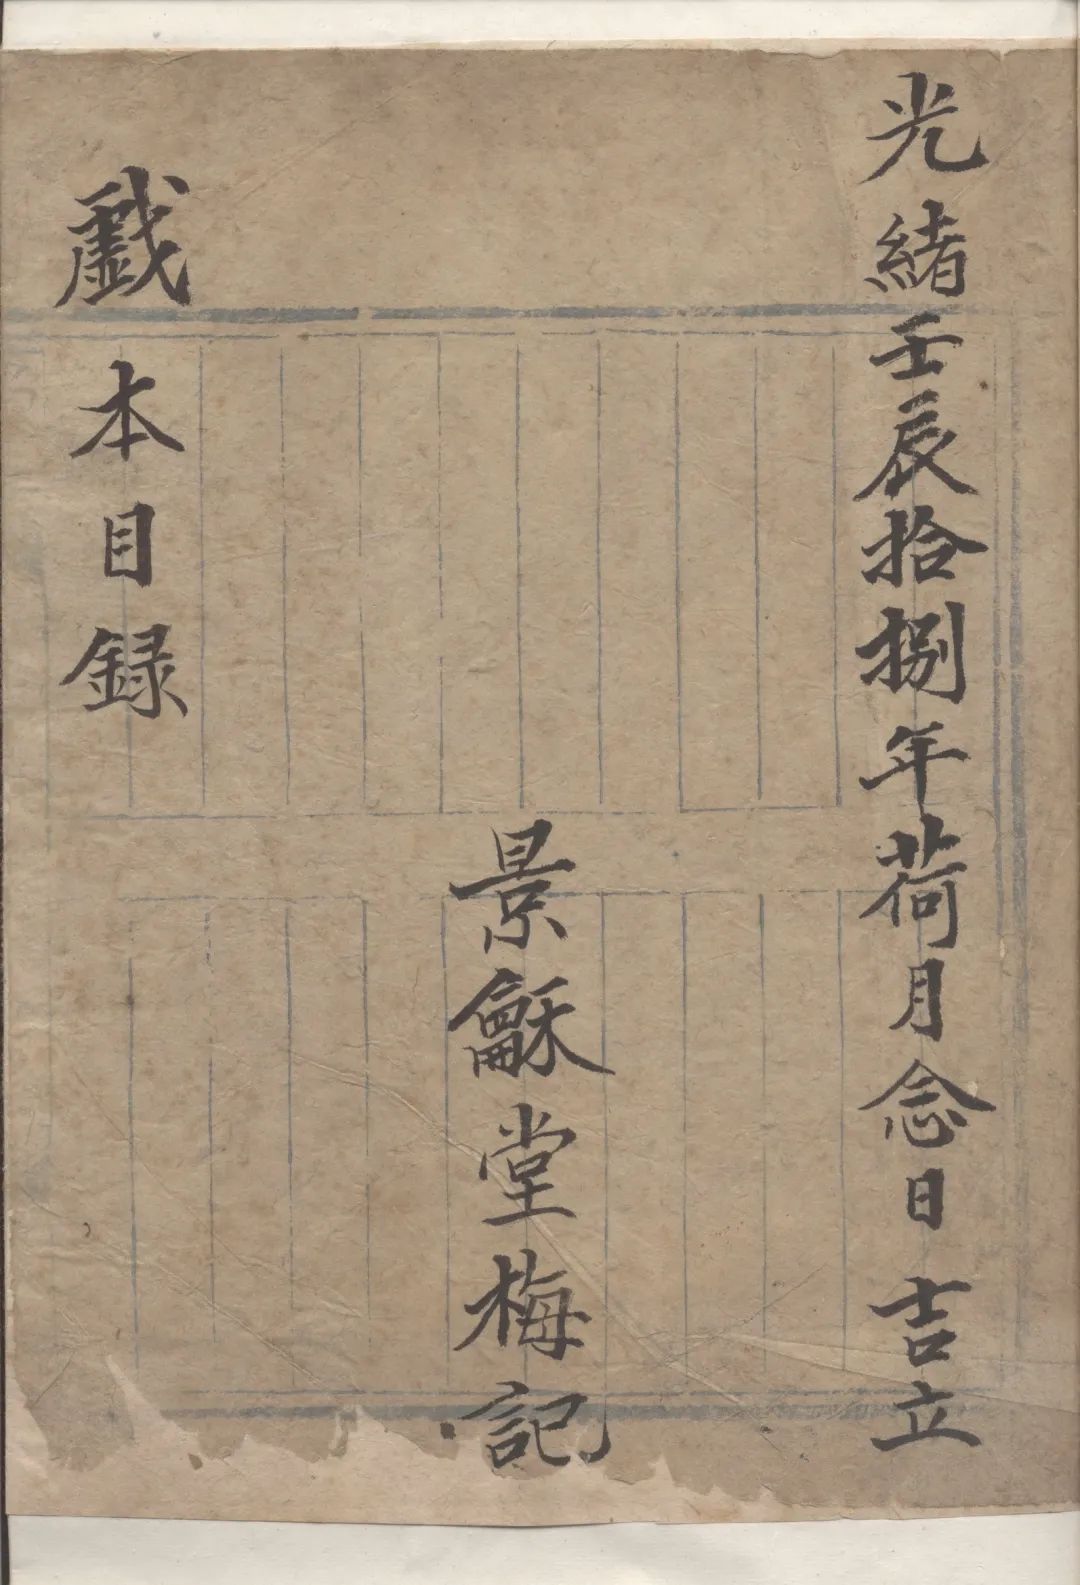 光緒壬辰拾捌年荷月念日吉立
景龢堂梅記
戲本目録